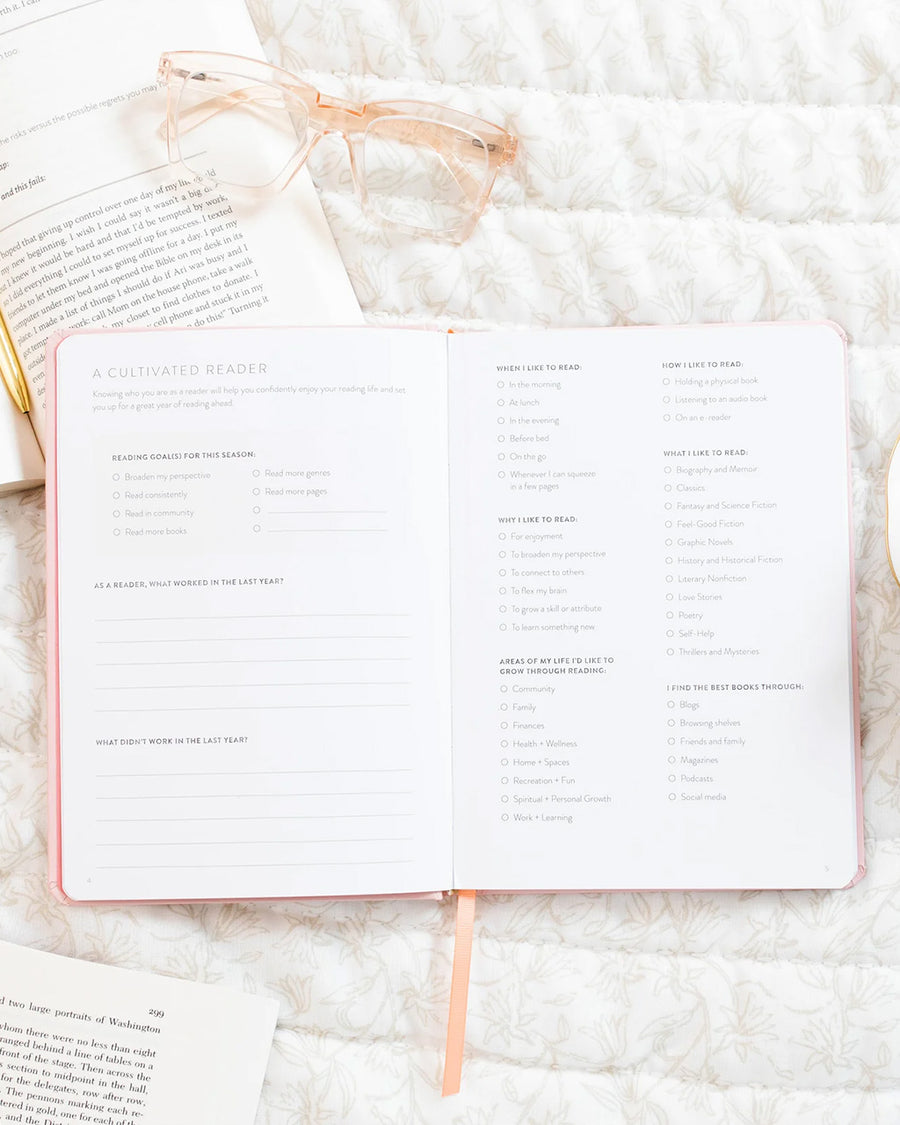 rth it. I can
n too:
he risks versus the possible regrets you may
ap:
and this fails:
hoped that giving up control over one day of my
my new beginning. I wish I could say it wasn't a big
I knew it would be hard and that I'd be tempted by work.
so I did everything I could to set myself up for success. I texted
ends to let them know I was going offline for a day. I put my
computer under my bed and opened the Bible on my desk in its
place. I made a list of things I should do if Ari was busy and I
got: call Mom on the house phone, take a walk
outside my closet to find clothes to donate. I
cell phone and stuck it in my
do this!" Turning it
even
A CULTIVATED READER
Knowing who you are as a reader will help you confidently enjoy your reading life and set
you up for a great year of reading ahead.
READING GOAL(S) FOR THIS SEASON:
Broaden my perspective
Read consistently
Read in community
Read more books
Read more genres
Read more pages
AS A READER, WHAT WORKED IN THE LAST YEAR?
WHAT DIDN'T WORK IN THE LAST YEAR?
4
WHEN I LIKE TO READ:
In the morning
At lunch
In the evening
Before bed
On the go
Whenever I can squeeze
in a few pages
WHY I LIKE TO READ:
For enjoyment
To broaden my perspective
To connect to others
To flex my brain
To grow a skill or attribute
To learn something new
AREAS OF MY LIFE I'D LIKE TO
GROW THROUGH READING:
Community
Family
Finances
Health + Wellness
Home + Spaces
Recreation + Fun
Spiritual + Personal Growth
Work + Learning
HOW I LIKE TO READ:
Holding a physical book
Listening to an audio book
On an e-reader
WHAT I LIKE TO READ:
Biography and Memoir
Classics
Fantasy and Science Fiction
Feel-Good Fiction
Graphic Novels
History and Historical Fiction
Literary Nonfiction
Love Stories
Poetry
Self-Help
Thrillers and Mysteries
I FIND THE BEST BOOKS THROUGH:
Blogs
Browsing shelves
Friends and family
Magazines
Podcasts
Social media
5
299
d two large portraits of Washington
whom there were no less than eight
ranged behind a line of tables on a
front of the stage. Then across the
s section to midpoint in the hall,
for the delegates, row after row,
. The pennons marking each re-
tered in gold, one for each of the
, and the